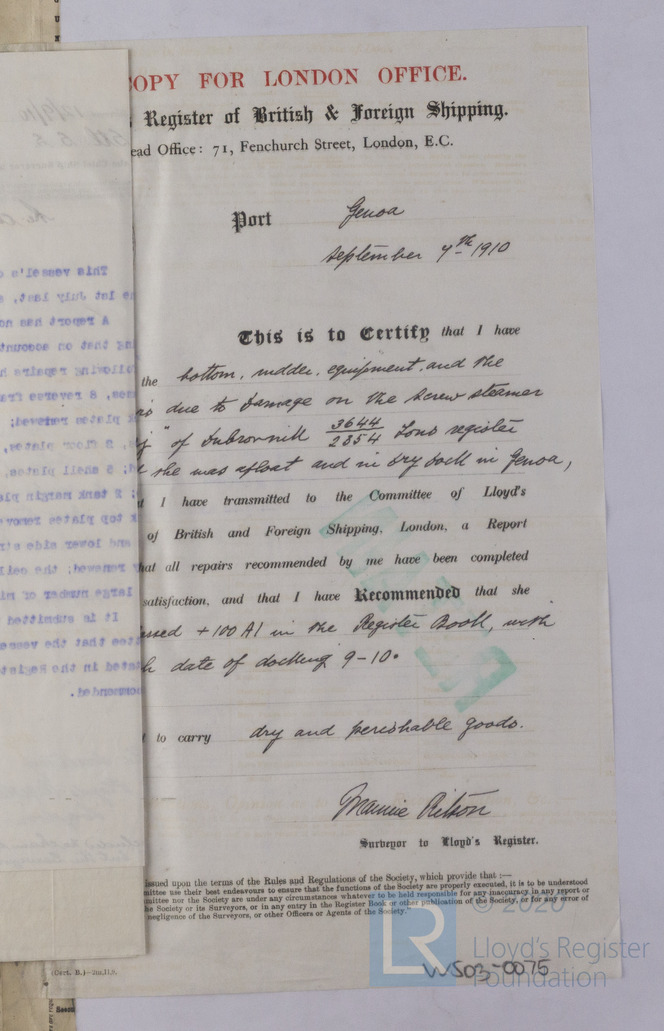 COPY FOR LONDON OFFICE.
Register of British & Foreign Shipping.
ead Office: 71, Fenchurch Street, London, E.C.
Port Genoa
September 7th 1910
This is to Certify that I have
the bottom, rudder, equipment, and the
due to damage on the screw steamer
" of Dubrovnik 3644/2354 Tons register
she was afloat and in dry dock in Genoa,
t I have transmitted to the Committee of Lloyd's
of British and Foreign Shipping, London, a Report
hat all repairs recommended by me have been completed
satisfaction, and that I have Recommended that she
assed +100A1 in the Register Book, with
h date of docking 9-10.
t to carry dry and perishable goods.
Surveyor to Lloyd's Register.
issued upon the terms of the Rules and Regulations of the Society, which provide that :—
mittee use their best endeavours to ensure that the functions of the Society are properly executed, it is to be understood
mittee nor the Society are under any circumstances whatever to be held responsible for any inaccuracy in any report or
he Society or its Surveyors, or in any entry in the Register Book or other publication of the Society, or for any error of
negligence of the Surveyors, or other Officers or Agents of the Society."
This vessel's
he 1st July last,
A report has no
ing that on account
ollowing repairs h
8 reverse fra
plates removed;
2 floor plates,
6 small plates
2 tank margin pla
top plates remove
and lower side str
renewed; the ceil
large number of mi
It is submitted
ttee that the vesse
ated in the Regist
commended.
© 2020
LR
Lloyd's Register
Foundation
WS03-0075